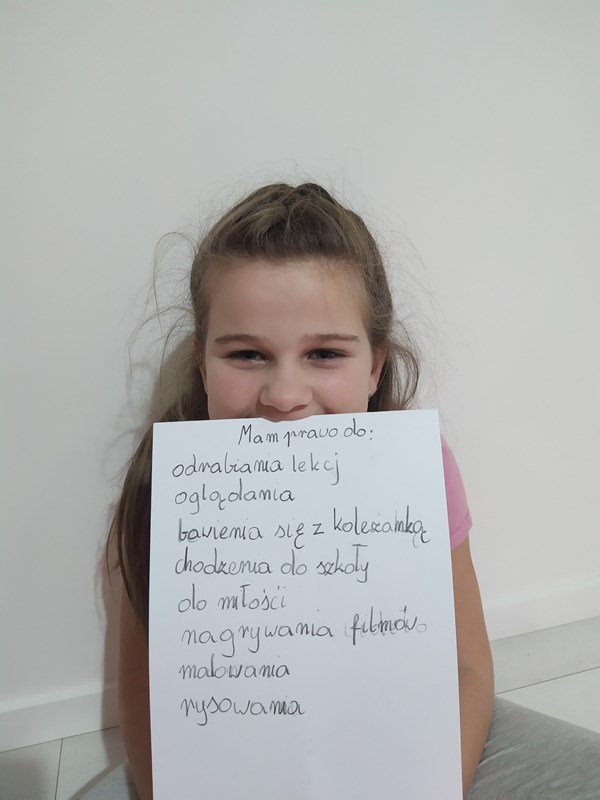 Mam prawo do:
odrabiania lekcj
oglądania
bawienia się z koleżanką
chodzenia do szkoły
do miłośći
nagrywania filmów
malowania
rysowania